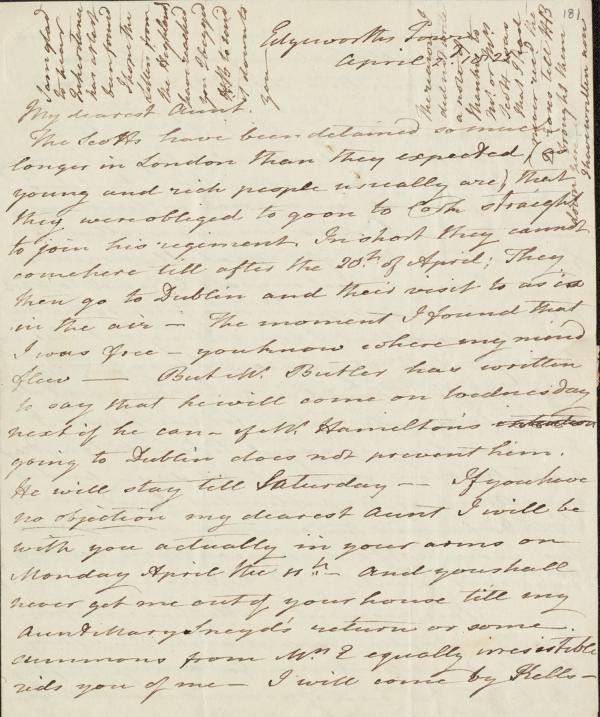 181
Edgeworths Town
April 1825
My dearest Aunt.
The Scotts have been detained so much
longer in London than they expected (
young and rich people usually are) that
they were obliged to go on to Cork straight
to join his regiment In short they cannot
come here till after the 20th of April; They
then go to Dublin and their visit to us is
in the air — The moment I found that
I was free — you know where my mind
flew — But Mr. Butler has written
to say that he will come on Wednesday
next if he can — if Mr. Hamilton's intention
going to Dublin does not prevent him.
He will stay till Saturday — If you have
no objection my dearest Aunt I will be
with you actually in your arms on
Monday April the 11th — And you shall
never get me out of your house till my
Aunt Mary Sneyd's return or some
summons from Mrs E equally irresistible
rids you of me — I will come by Kells —
I am glad
to hear
Inheritance
has at last
been found
I hope the
letters from
the Highland
have reached
you I begged
HB to send
you
The reason I
did not
a note
Scott was
that I
never
till HB
brought them
down
I have written now